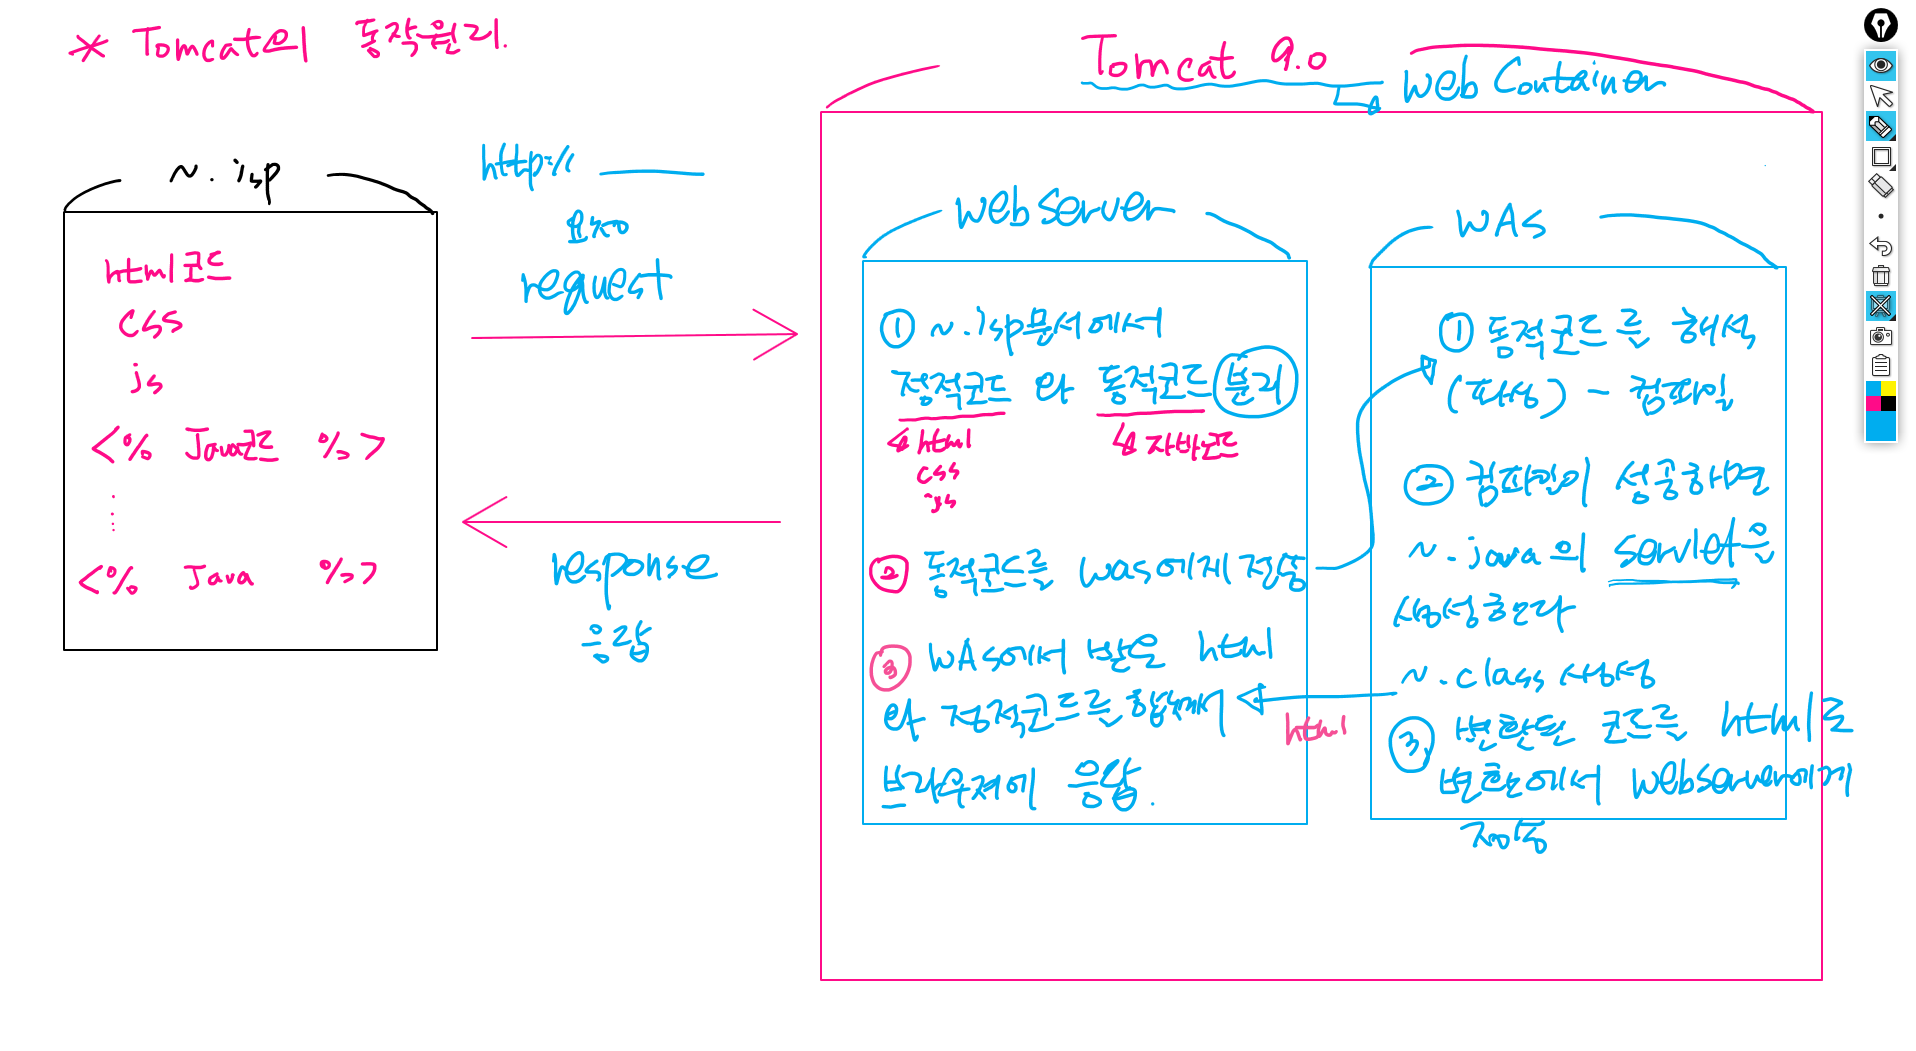 * Tomcat의 동작원리.
~.jsp
html코드
css
js
<% Java코드 %>
<% Java %>
http://
요청
request
response
응답
Tomcat 9.0
web Container
web server
① ~.jsp문서에서
정적코드 와 동적코드 분리
html
css
js
자바코드
② 동적코드를 was에게 전송
③ WAS에서 받은 html
와 정적코드를 합쳐서
브라우져에 응답.
html
WAS
① 동적코드를 해석
(파싱) - 컴파일
② 컴파일이 성공하면
~.java의 servlet을
생성한다
~.class 생성
③ 변환된 코드를 html로
변환에서 webserver에게
전송